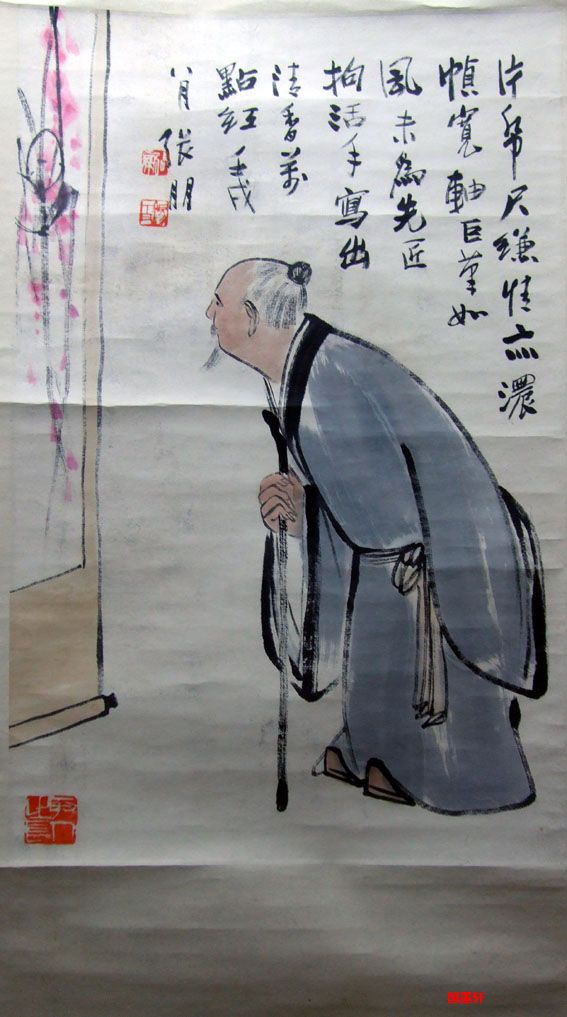 片帋尺縑情亦濃
幀寬軸巨筆如
風未為先匠
拘活手寫出
清香萬
點紅壬戌
八月張朋